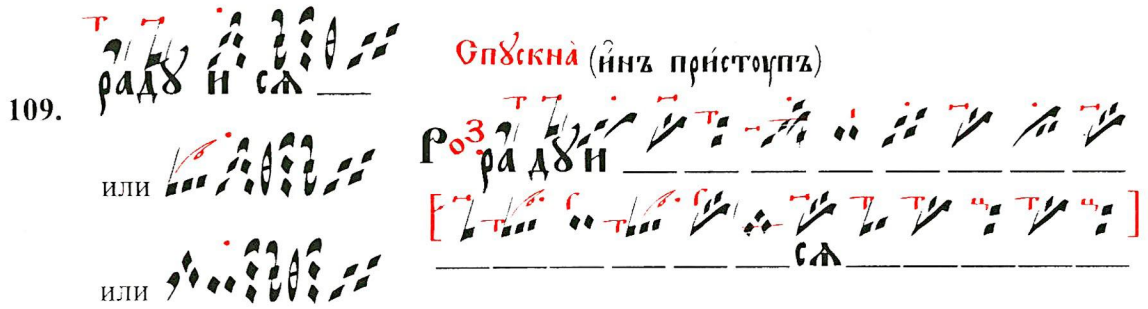 109.
раду и сѧ
или
или
Спꙋскна̀ (и҆́нъ при́стоупъ)
Роз
ра дꙋ и
сѧ